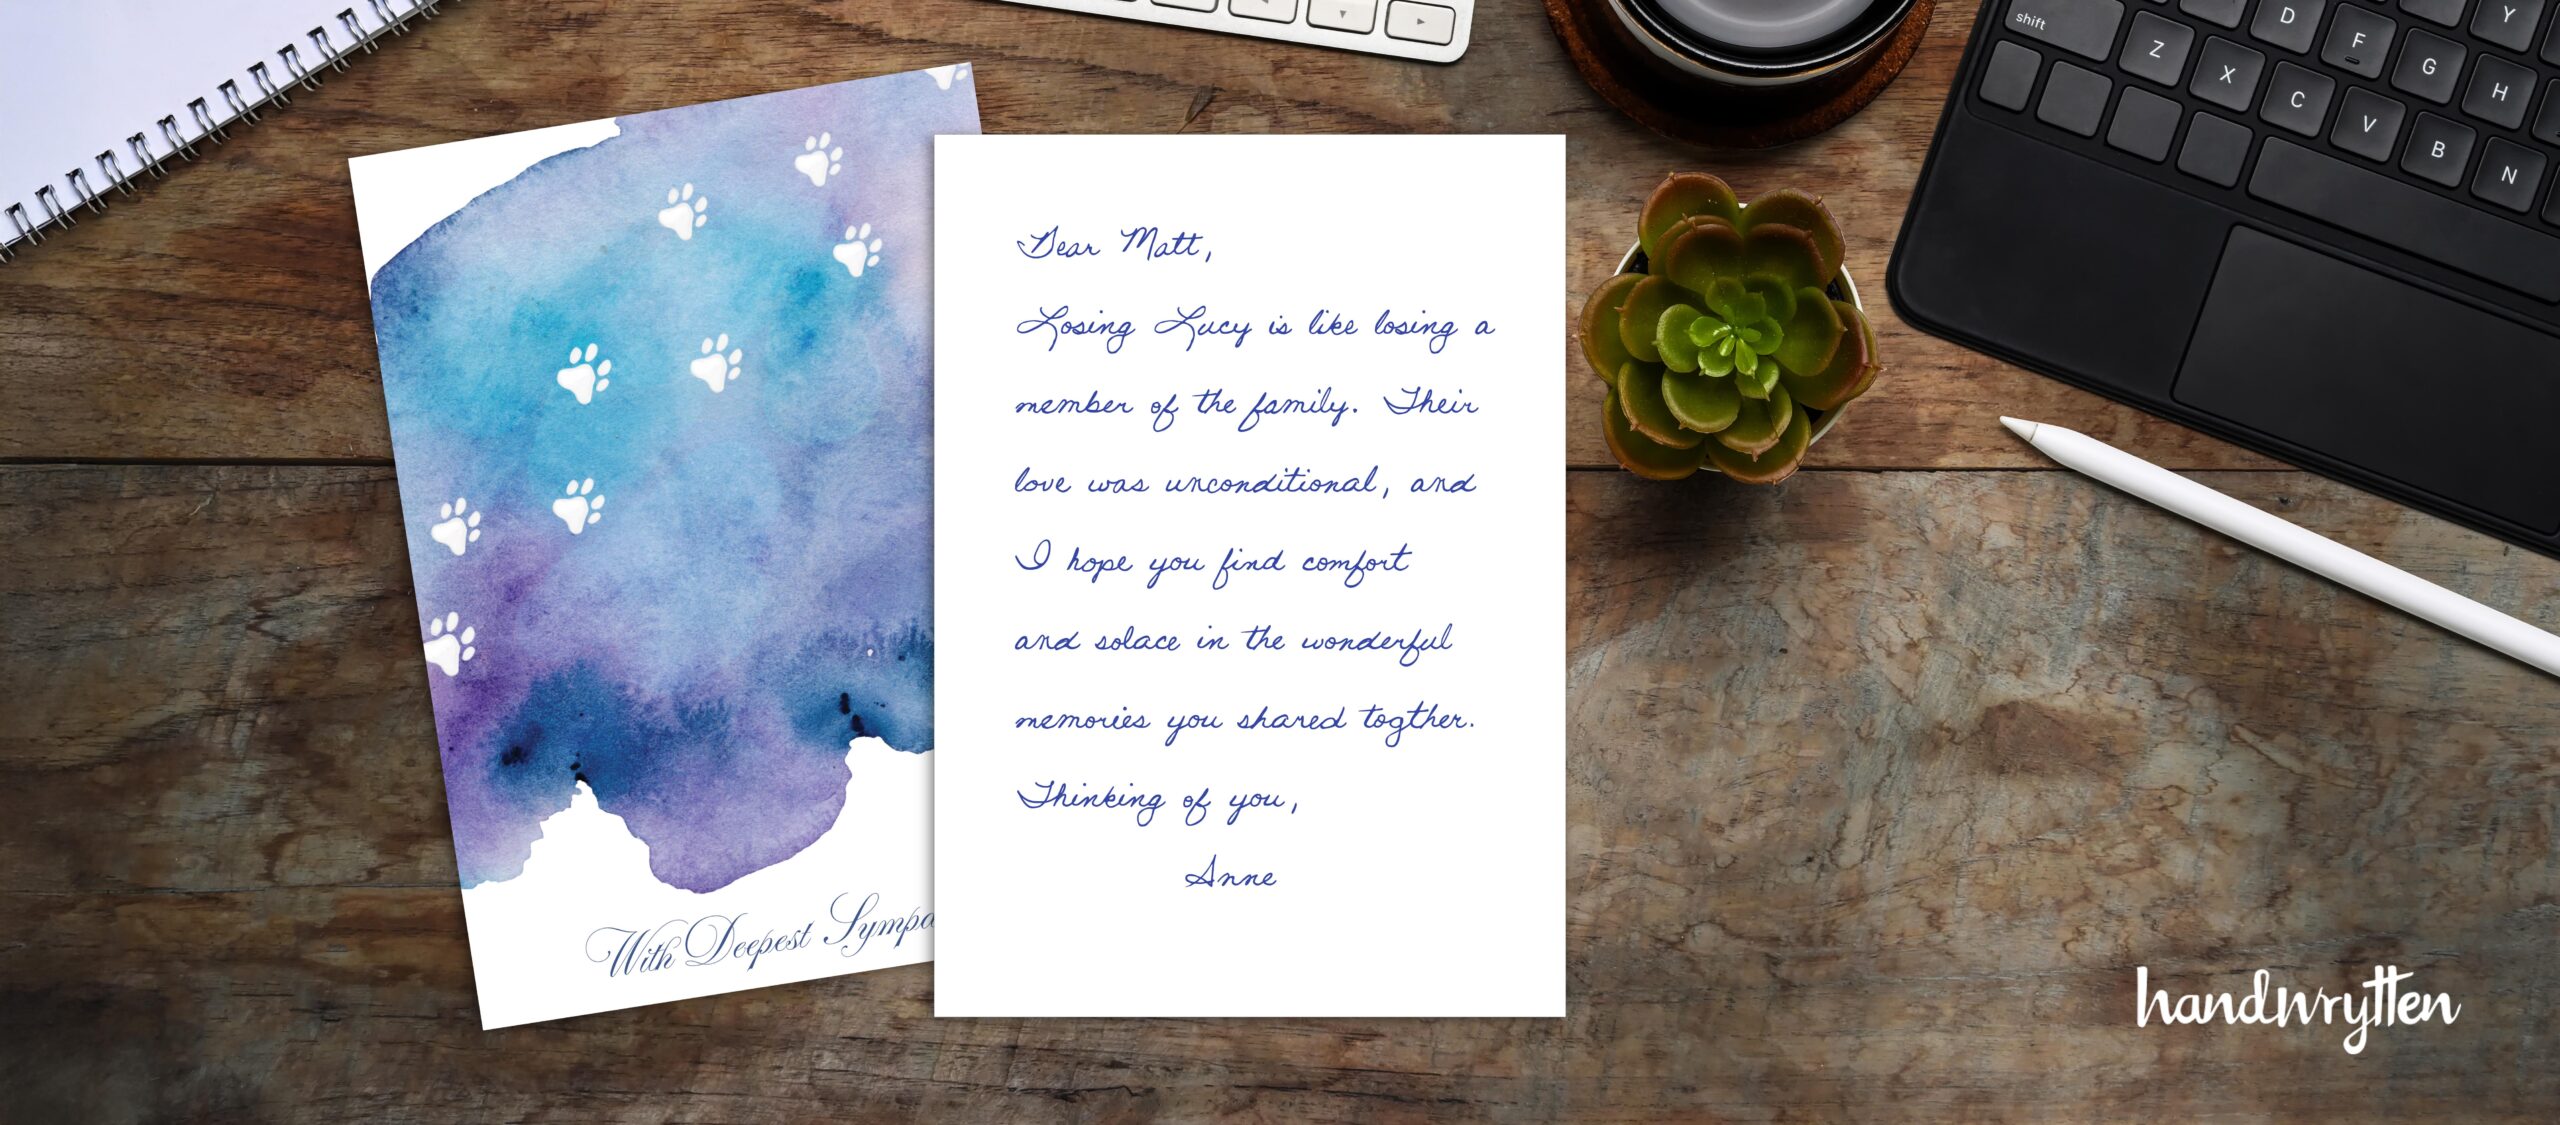 Dear Matt,
Losing Lucy is like losing a
member of the family. Their
love was unconditional, and
I hope you find comfort
and solace in the wonderful
memories you shared togther.
Thinking of you,
Anne
With Deepest Sympa
handwrytten
shift
Z X C V B N
D F G H Y